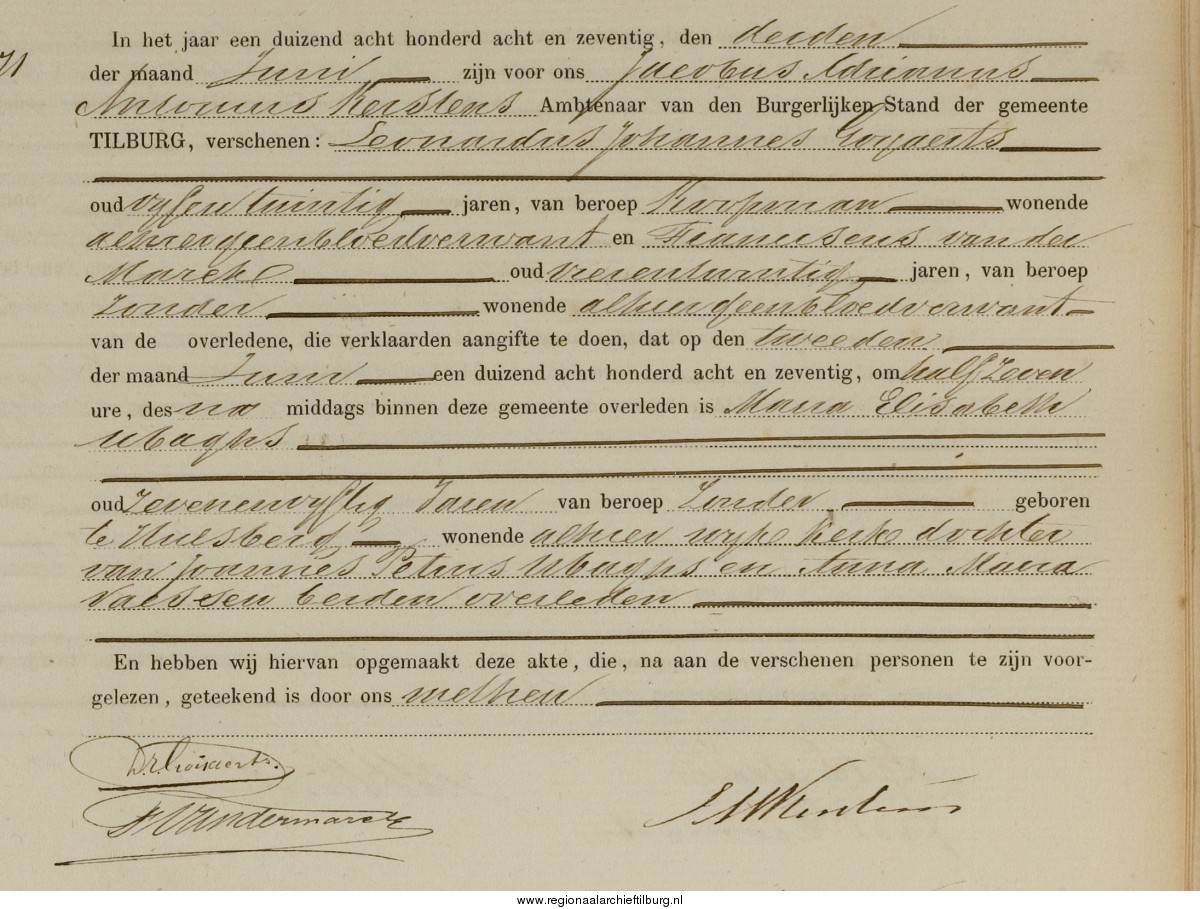 71
In het jaar een duizend acht honderd acht en zeventig, den derden
der maand Juni zijn voor ons Jacobus Adrianus
Antonius Kerstens Ambtenaar van den Burgerlijken Stand der gemeente
TILBURG, verschenen: Leonardus Johannes Goyaerts
oud vyfentwintig jaren, van beroep Koopman wonende
alhier geen bloedverwant en Franciscus van der
Marck oud vierentwintig jaren, van beroep
zonder wonende alhier geen bloedverwant
van de overledene, die verklaarden aangifte te doen, dat op den tweeden
der maand Juni een duizend acht honderd acht en zeventig, om half zeven
ure, des na middags binnen deze gemeente overleden is Maria Elisabeth
Ubaghs
oud zevenenvyftig Jaren van beroep zonder geboren
te Hulsberg wonende alhier wyk Kerk dochter
van Joannes Petrus Ubaghs en Anna Maria
Vaessen beiden overleden
En hebben wij hiervan opgemaakt deze akte, die, na aan de verschenen personen te zijn voor-
gelezen, geteekend is door ons met hen
F Vandermarck
www.regionaalarchieftilburg.nl